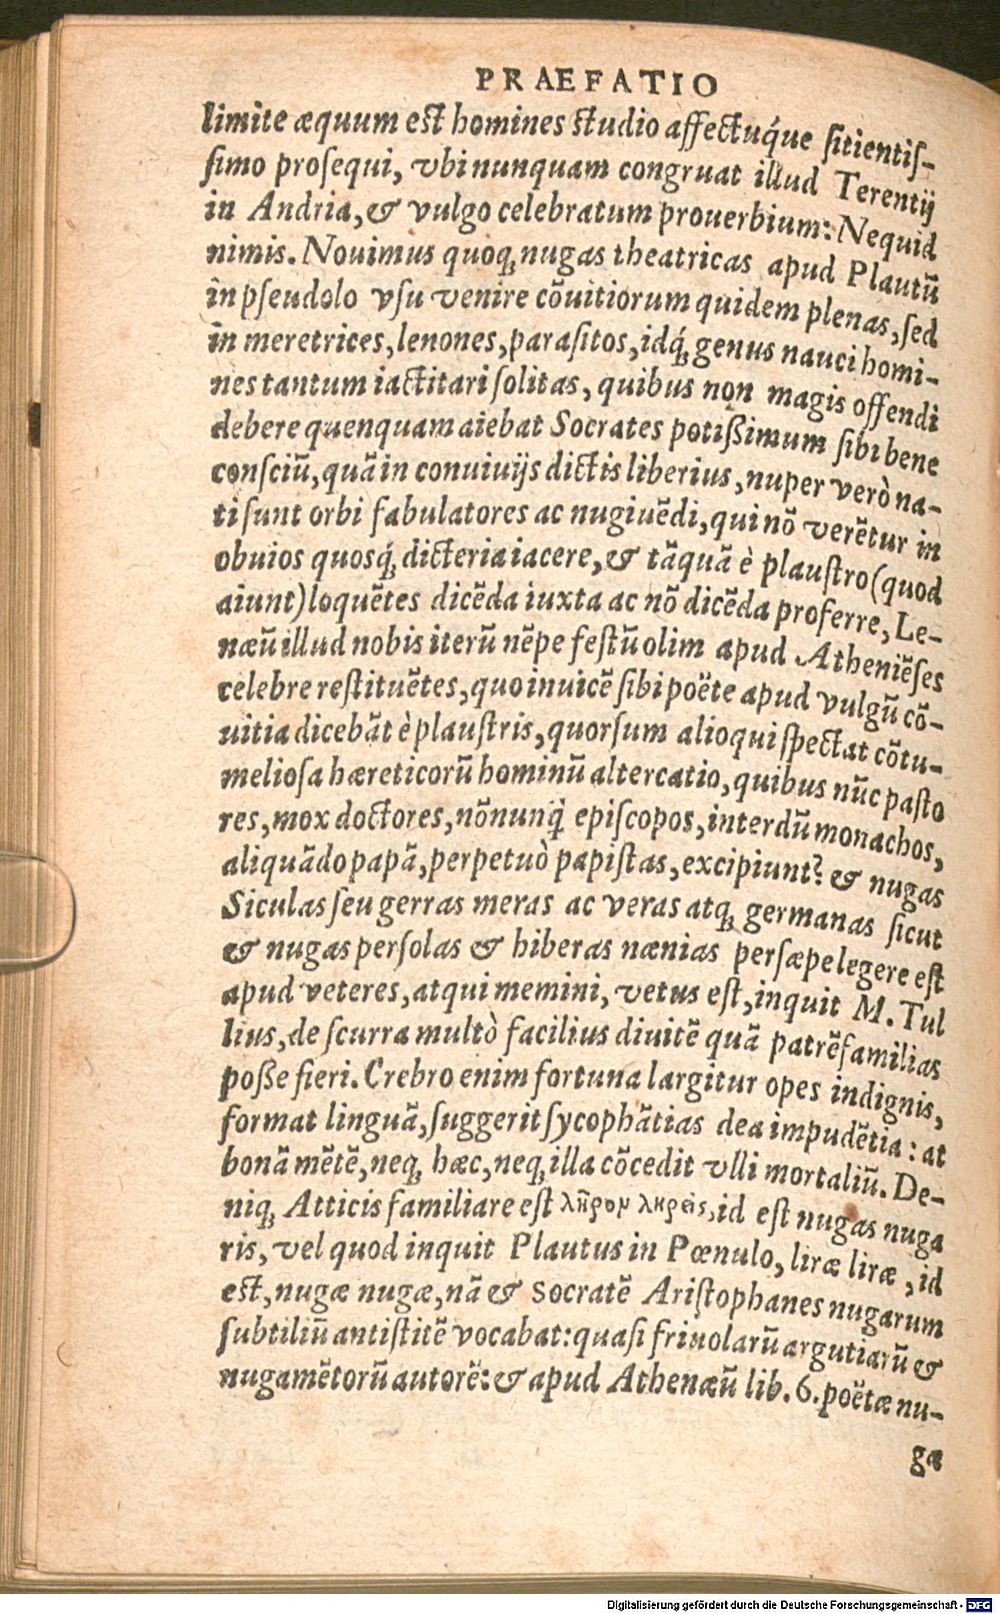 PRAEFATIO
limite æquum est homines studio affectuq́ue sitientiſ-
ſimo proſequi, vbi nunquam congruat illud Terentij
in Andria, & vulgo celebratum prouerbium: Nequid
nimis. Nouimus quoq; nugas theatricas apud Plautũ
in pſeudolo vſu venire cõuitiorum quidem plenas, ſed
in meretrices, lenones, paraſitos, idq́; genus nauci homi-
nes tantum iactitari ſolitas, quibus non magis offendi
debere quenquam aiebat Socrates potißimum ſibi bene
conſciũ, quã in conuiuijs dictis liberius, nuper verò na-
ti ſunt orbi fabulatores ac nugiuẽdi, qui nõ verẽtur in
obuios quosq́; dicteria iacere, & tãquã è plauſtro (quod
aiunt) loquẽtes dicẽda iuxta ac nõ dicẽda proferre, Le-
næũ illud nobis iterũ nẽpe feſtũ olim apud Atheniẽſes
celebre reſtituẽtes, quo inuicẽ ſibi poëte apud vulgũ cõ-
uitia dicebãt è plauſtris, quorſum alioqui ſpectat cõtu-
melioſa hæreticorũ hominũ altercatio, quibus nũc paſto
res, mox doctores, nõnunq́; epiſcopos, interdũ monachos,
aliquãdo papã, perpetuò papiſtas, excipiunt? & nugas
Siculas ſeu gerras meras ac veras atq; germanas ſicut
& nugas perſolas & hiberas nænias perſæpe legere eſt
apud veteres, atqui memini, vetus eſt, inquit M. Tul
lius, de ſcurra multò facilius diuitẽ quã patrẽfamilias
poſſe fieri. Crebro enim fortuna largitur opes indignis,
format linguã, ſuggerit ſycophãtias dea impudẽtia: at
bonã mẽtẽ, neq; hæc, neq; illa cõcedit vlli mortaliũ. De-
niq; Atticis familiare eſt λῆρον ληρεῖς, id eſt nugas nuga
ris, vel quod inquit Plautus in Pœnulo, liræ liræ, id
est, nugæ nugæ, nã & Socratẽ Ariſtophanes nugarum
ſubtiliũ antiſtitẽ vocabat: quaſi friuolarũ argutiarũ &
nugamẽtorũ autorẽ: & apud Athenæũ lib. 6. poëtæ nu-
gæ
Digitalisierung gefördert durch die Deutsche Forschungsgemeinschaft - DFG